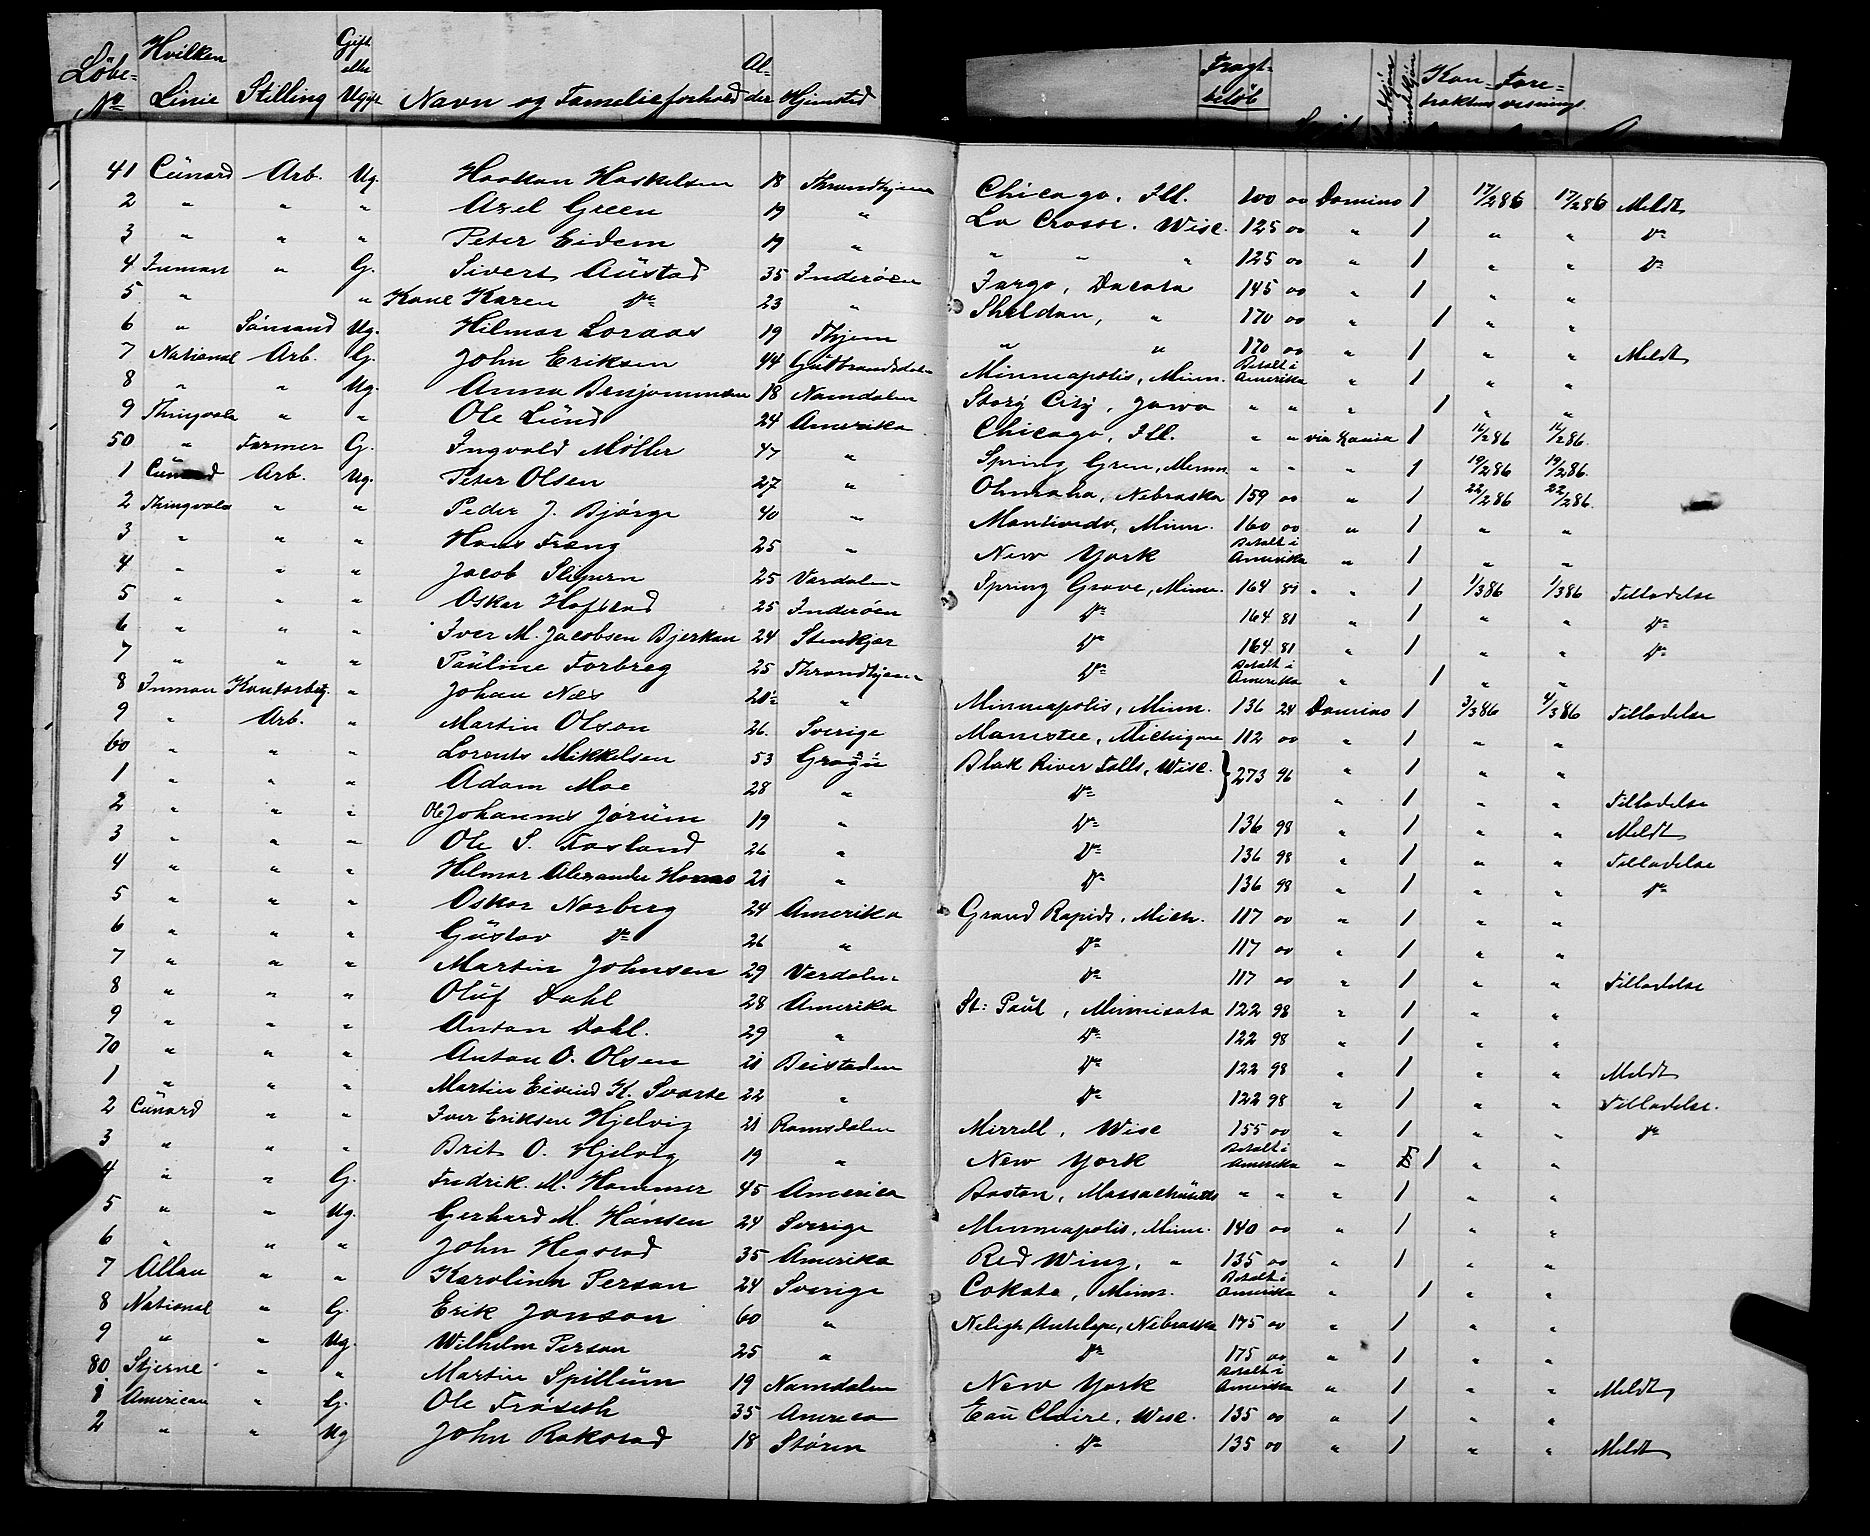 Løbe-No Hvilken Linie Stilling Gift eller Ugift Navn og Familieforhold Alder Hjemsted Fragtbeløb Kontraktens Forevisnings
41 Cunard Arb. Ug. Haakan Haskelsen 18 Throndhjem Chicago, Ill. 100 00 Domino 1 17/2 86 17/2 86 Meldt
2 " " " Axel Green 19 " La Crosse. Wisc. 125 00 " 1 " " Do
3 " " " Peter Eidem 19 " " " " 125 00 " 1 " " Do
4 Inman " G. Sivert Austad 35 Inderøen Fargo, Dacota 145 00 " 1 " "
5 " " Kone Karen Do 23 " Sheldon, " 170 00 " 1 " "
6 " Sømand Ug. Hilmar Loraas 19 Thjem " " 170 00 " 1 " " Meldt
7 National Arb. G. John Eriksen 44 Gulbrandsdalen Minneapolis, Minn. Betalt i Amerika " 1 " "
8 " " Ug. Anna Benjaminsen 18 Namdalen Story City, Jowa " " " 1 " "
9 Thingvala " " Ole Lund 24 Amerika Chicago, Ill. " " 1 /2 86 /2 86
50 " Farmer G. Ingvald Møller 47 " Spring Gren, Minn. " " " 1 19/2 86 19/2 86
1 Cunard Arb. Ug. Peter Olsen 27 " Ohmaha, Nebraska 159 00 " 1 22/2 86 22/2 86
2 Thingvala " " Peder J. Bjørge 40 " Montivedo, Minn. 160 00 " 1 " "
3 " " " Hans Fræng 25 " New York Betalt i Amerika " 1 " "
4 " " " Jacob Slipern 25 Værdalen Spring Grove, Minn. 164 81 " " 1 1/3 86 1/3 86 Tilladelse
5 " " " Oskar Hofstad 25 Inderøen Do 164 81 " 1 " " Do
6 " " " Iver M. Jacobsen Bjerkan 24 Stenkjær Do 164 81 " 1 " " Do
7 " " " Pauline Forbreg 25 Throndhjem Do Betalt i Amerika " 1 " "
8 Inman Kontorbetj. " Johan Næs " Minneapolis, Minn. 136 24 Domino 1 3/3 86 4/3 86 Tilladelse
9 " Arb. " Martin Olson 26. Sverige Manistee, Michigan 112 00 " 1 " "
60 " " " Lorents Mikkelsen 53 Blak River Falls, Wisc. } 273 96 " 1 " "
1 " " " Adam Moe 28 " Do " 1 " " Tilladelse
2 " " " Ole Johannes Jørum 19 " Do 136 98 " 1 " " Meldt
3 " " " Ole S. 26 " Do 136 98 " 1 " " Tilladelse
4 " " " Helmar Alexander 21 " Do 136 98 " 1 " " Do
5 " " " Oskar Norberg 24 Amerika Grand Rapids, Mich. 117 00 " 1 " "
6 " " " Gustav Do 26 " Do 117 00 " 1 " "
7 " " " Martin Johnsen 29 Værdalen Do 117 00 " 1 " " Tilladelse
8 " " " Oluf Dahl 28 Amerika St: Paul, Minnisota 122 98 " 1 " "
9 " " " Anton Dahl. 29 " Do 122 98 " 1 " "
70 " " " Anton O. Olsen 21 Beistaden Do 122 98 " 1 " " Meldt
1 " " " Martin Eivind K. Svarte 22 " Do 122 98 " 1 " " Tilladelse.
2 Cunard " " Iver Eriksen Hjelvig 21 Romsdalen Mirrell, Wisc 155 00 " 1 " " Do
3 " " " Brit O. Hjelvig 19 " New York Betalt i Amerika " 1 " "
4 " " G. Fredrik. M. Hammer 45 America Boston, Massachusetts " " " 1 " "
5 " " Ug. Gerhard M. Hansen 24 Sverige Minneapolis, Minn. 140 00 " 1 " "
6 " " " John Hegstad 35 Amerika Red Wing, " 135 00 " 1 " "
7 Allan " " Karolina Person 24 Sverige Cokato, Minn. Betalt i Amerika " 1 " "
8 National " G. Erik Jonson 60 " Neligh Antelope, Nebraska 175 00 " 1 " "
9 " " Ug. Wilhelm Person 25 " Do 175 00 " 1 " "
80 Stjerne " " Martin Spillum 19 Namdalen New York Betalt i Amerika " 1 " " Meldt
1 American " G. Ole Frøseth 35 America Eau Claire, Wisc. 135 00 " 1 " "
2 " " Ug John Rokstad 18 Støren Do 135 00 " 1 " " Meldt